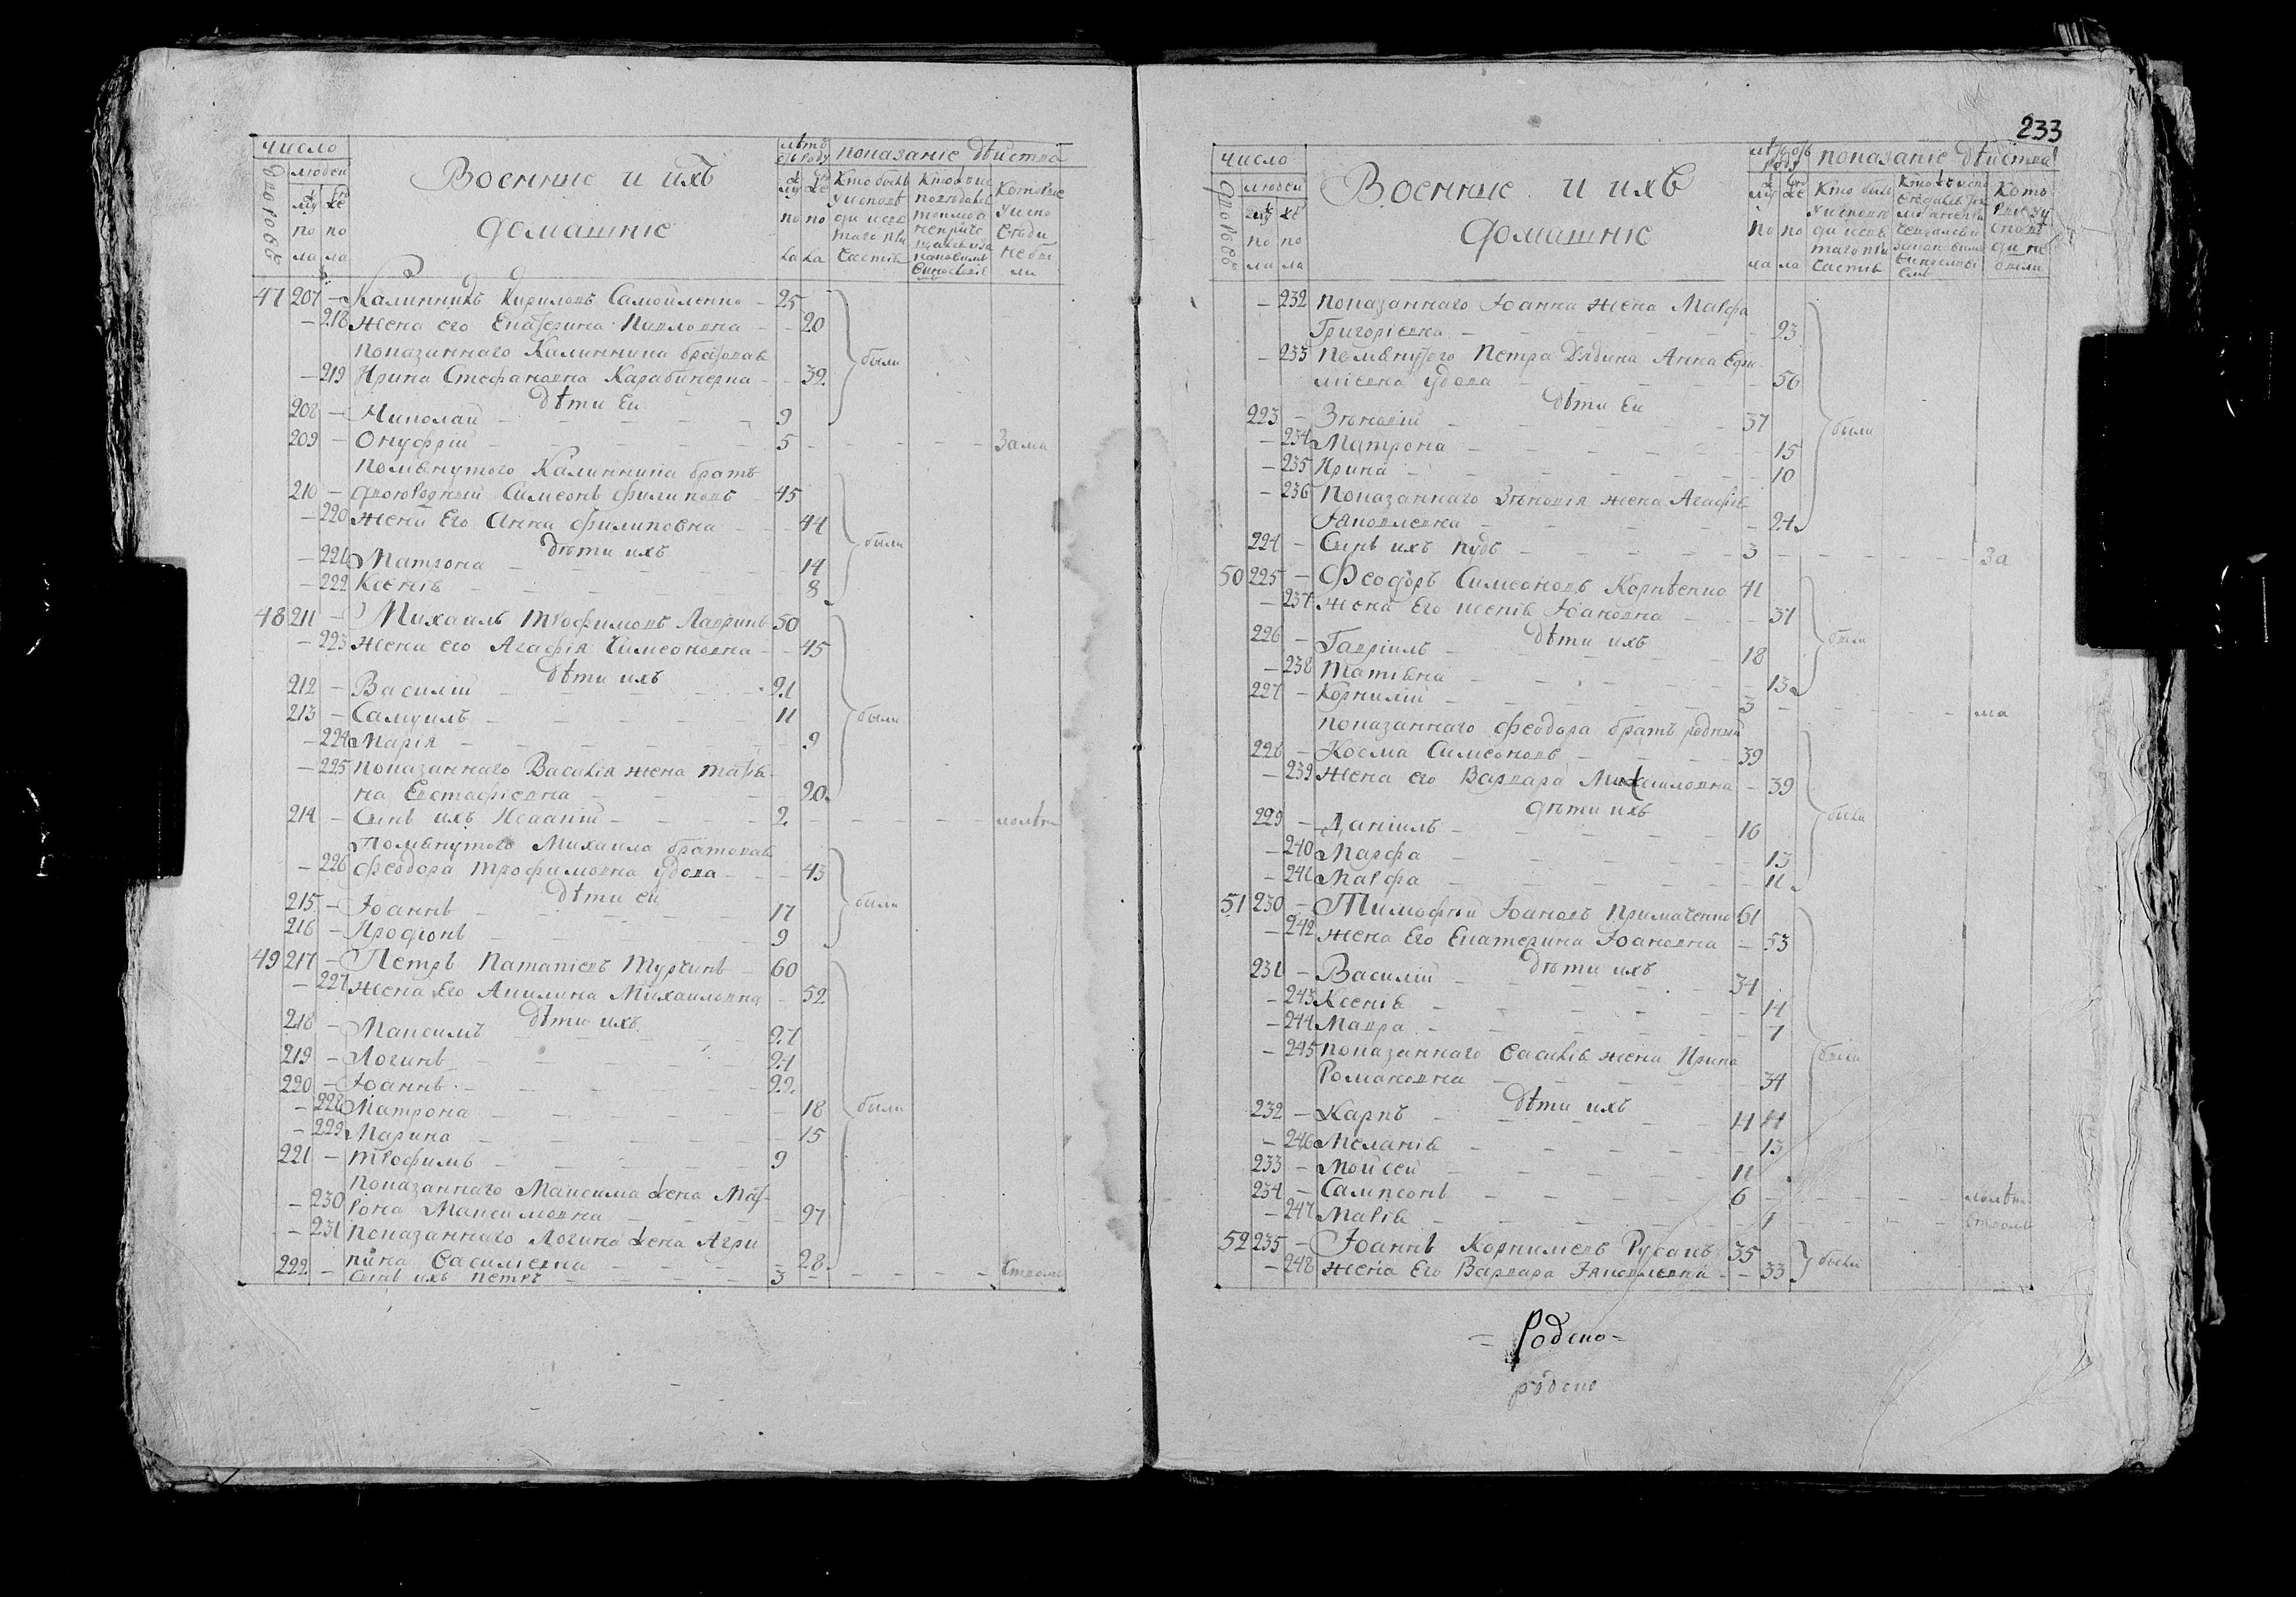 число
дворовъ
людей
му же
по по
ла ла
Военные и ихъ
домашніе
лѣтъ
отъ роду
му же
по по
ла ла
показаніе дѣйства
Кто былъ
у исповѣ
ди и свя
таго при
частія
Которые
у испо
вѣди
не бы
ли
47 207 — Калинникъ Кириловъ Самойленко — 25
— 218 жена его Екатерина Павловна — — 20
показаннаго Калинника братовая
— 219 Ирина Стефановна Карабинерка — — 32
были
дѣти ея
208 — Николай — 9
209 — Онуфрій — 5 — — — — зама
помянутого Калинника братъ
210 — двоюродный Симеонъ Филиповъ 45
— 220 жена Его Анна Филиповна — — 44
дѣти ихъ
были
— 221 Матрона — 14
— 222 Ксенія — 8
48 211 — Михаилъ Трофимовъ Лавринъ 50
— 223 жена его Агафія Симеоновна — — 45
дѣти ихъ
212 — Василій — 21
213 — Самуилъ — 11
были
— 224 Марія — 9
— 225 показаннаго Василія жена Татія
на Евстафіевна — 20
214 — Сынъ ихъ Исаакій — 2 — — — — лолѣт
Помянутого Михаила братовая
— 226 Феодора Трофимовна вдова — — 43
дѣти ея
215 — Іоаннъ — 17
были
216 — Ирофіонъ — 9
49 217 — Петръ Паталіевъ Турчинъ — 60
— 227 жена Его Акилина Михаиловна — 52
дѣти ихъ
218 — Максимъ — 27
219 — Логинъ — 24
220 — Іоаннъ — 22
— 228 Матрона — 18
были
— 229 Марина — 15
221 — Трофимъ — 9
показаннаго Максима жена Мат
— 230 рона Максимовна — 27
— 231 показаннаго Логина жена Агри
пина Василіевна — 28
222 — Сынъ ихъ Петръ — 3 — — — —
233
число
дворовъ
людей
му же
по по
ла ла
Военные и ихъ
домашніе
лѣтъ отъ
роду
му же
по по
ла ла
показаніе дѣйства
Кто былъ
у исповѣ
ди и свя
таго при
частія
Кото
рые у
исповѣ
ди не
были
— 232 показаннаго Іоанна жена Марфа
Григоріевна — 23
— 233 помянутого Петра дядина Анна Ефи
міевна вдова — 56
дѣти ея
223 — Зѣновій — 37
были
— 234 Матрона — 15
— 235 Ирина — 10
— 236 показаннаго Зѣновія жена Агафія
Іаковлевна — 24
224 — Сынъ ихъ Иудъ — 3 — — — — за
50 225 — Феодоръ Симеоновъ Корнѣенко 41
— 237 жена Его Ксенія Іоановна — 37
дѣти ихъ
226 — Гавріилъ — 18
были
— 238 Татіана — 13
227 — Корнилій — 3 — — — — ма
показаннаго Феодора братъ родный
228 — Косма Симеоновъ — 39
— 239 жена его Варвара Михаиловна — 39
дѣти ихъ
229 — Даніилъ — 16
были
— 240 Марфа — 13
— 241 Марфа — 11
51 230 — Тимофей Іоановъ Примаченко 61
— 242 жена Его Екатерина Іоановна — 53
дѣти ихъ
231 — Василій — 34
— 243 Ксенія — 14
— 244 Мавра — 7
— 245 показаннаго Василія жена Ирина
были
Романовна — 34
дѣти ихъ
232 — Карпъ — 14
— 246 Меланія — 13
233 — Мойсей — 11
234 — Сампсонъ — 6 — — — — лолѣт
— 247 Марія — 1 — — —
52 235 — Іоаннъ Корниліевъ Русакъ 35
— 248 жена Его Варвара Іаковлевна — — 33
были
= Родско =
родско